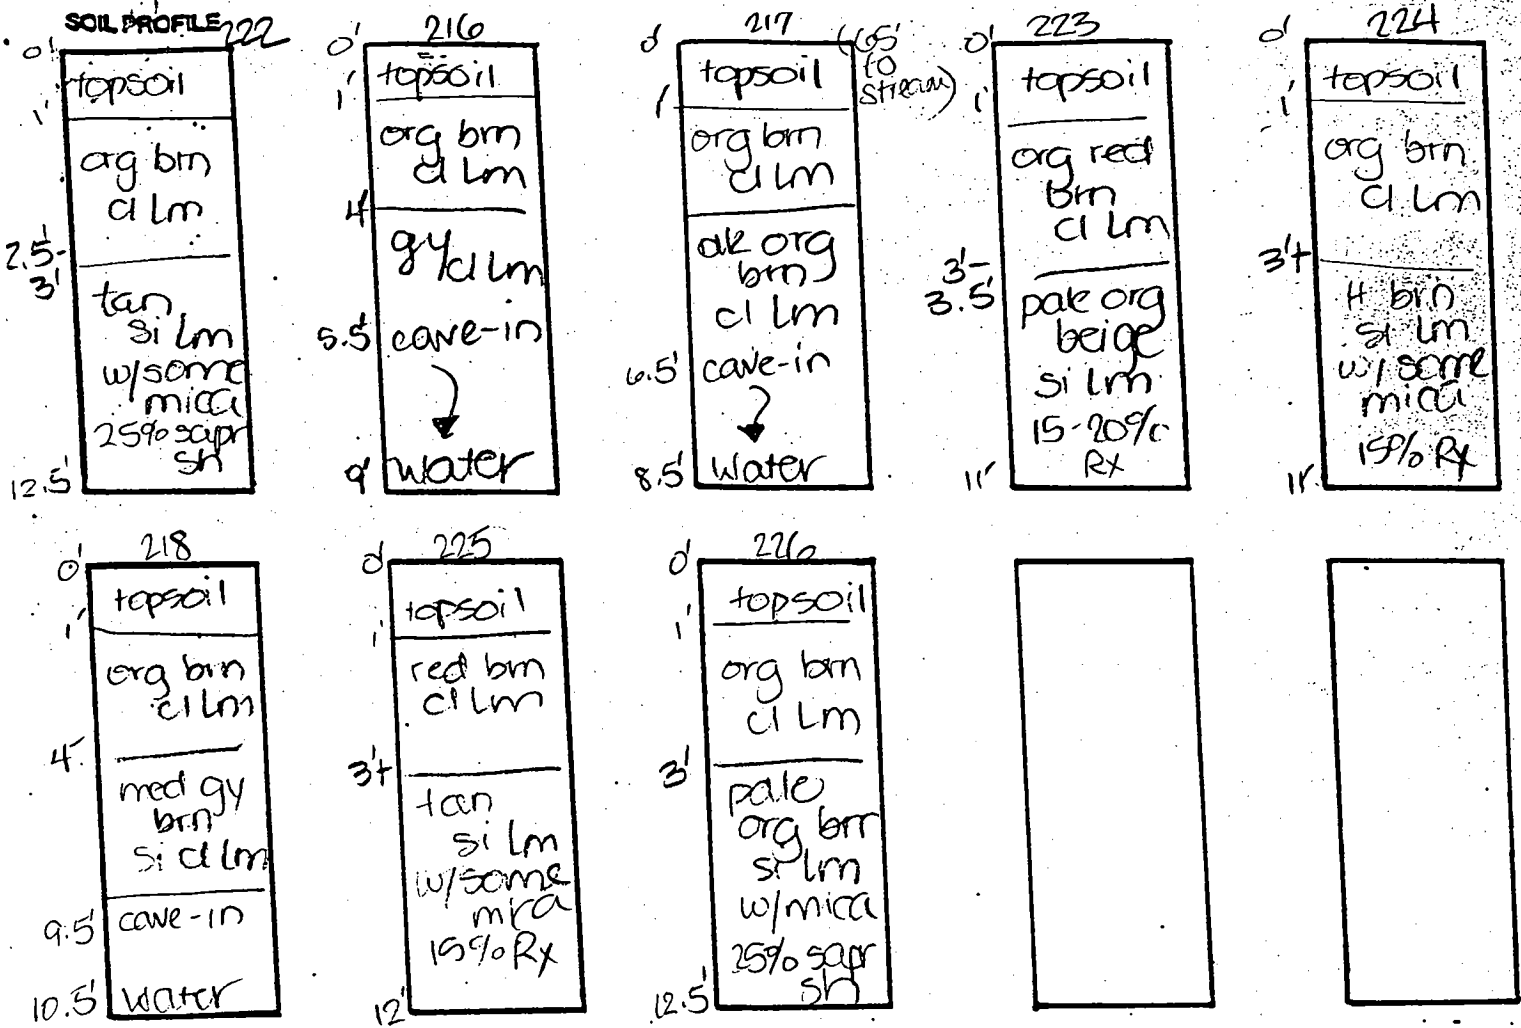 SOIL PROFILE 222
0'
topsoil
1'
org brn
cl Lm
2.5'-
3'
tan
si Lm
w/some
mica
25% sapr
sh
12.5'
216
0'
topsoil
1'
org brn
cl Lm
4'
gy/cl Lm
5.5' cave-in
9' water
217
(65'
to
stream)
0'
topsoil
1'
org brn
cl Lm
dk org
brn
cl Lm
6.5' cave-in
8.5' water
223
0'
topsoil
1'
org red
brn
cl Lm
3'-
3.5'
pale org
beige
si Lm
15-20%
Rx
11'
224
0'
topsoil
1'
org brn
cl Lm
3'+
lt brn
si Lm
w/some
mica
15% Rx
11'
218
0'
topsoil
1'
org brn
cl Lm
4'
med gy
brn
si cl Lm
9.5' cave-in
10.5' water
225
0'
topsoil
1'
red brn
cl Lm
3'+
tan
si Lm
w/some
mica
15% Rx
12'
226
0'
topsoil
1'
org brn
cl Lm
3'
pale
org brn
si Lm
w/mica
25% sapr
sh
12.5'